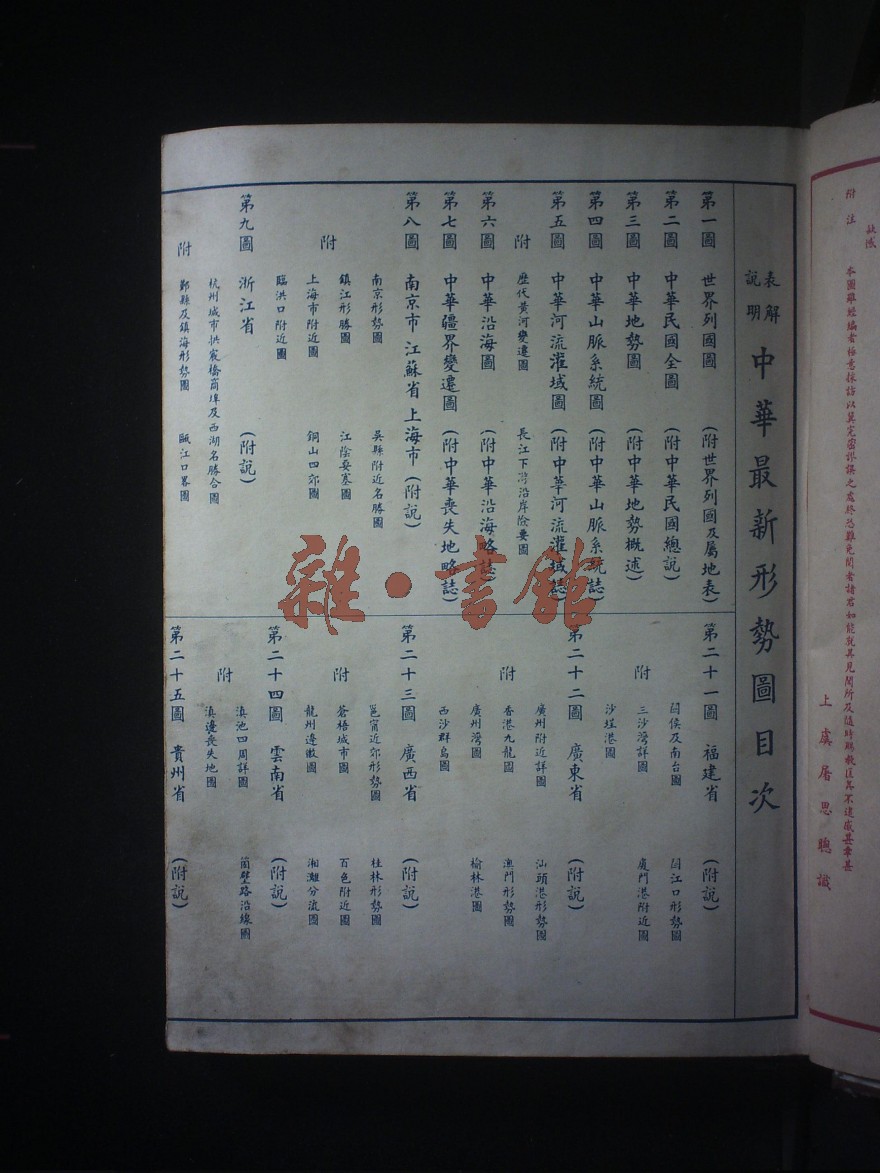 附注 本圖雖經編者極意採訪以冀完密訛誤之處終恐難免閱者諸君如能就其見聞所及隨時賜教匡其不逮感甚幸甚
上虞屠思聰識
表解說明中華最新形勢圖目次
第一圖 世界列國圖 (附世界列國及屬地表)
第二圖 中華民國全圖 (附中華民國總說)
第三圖 中華地勢圖 (附中華地勢概述)
第四圖 中華山脈系統圖 (附中華山脈系統誌)
第五圖 中華河流灌域圖 (附中華河流灌域誌)
附 歷代黃河變遷圖 長江下游沿岸險要圖
第六圖 中華沿海圖 (附中華沿海略誌)
第七圖 中華疆界變遷圖 (附中華喪失地略誌)
第八圖 南京市 江蘇省 上海市 (附說)
南京形勢圖 吳縣附近名勝圖
附 鎮江形勝圖 江陰要塞圖
上海市附近圖 銅山四郊圖
臨洪口附近圖
第九圖 浙江省 (附說)
杭州城市拱宸橋商埠及西湖名勝合圖
附 鄞縣及鎮海形勢圖 甌江口畧圖
第二十一圖 福建省 (附說)
閩侯及南台圖 閩江口形勢圖
附 三沙灣詳圖 廈門港附近圖
沙埕港圖
第二十二圖 廣東省 (附說)
廣州附近詳圖 汕頭港形勢圖
附 香港九龍圖 澳門形勢圖
廣州灣圖 榆林港圖
西沙群島圖
第二十三圖 廣西省 (附說)
邕甯近郊形勢圖 桂林形勢圖
附 蒼梧城市圖 百色附近圖
龍州邊徼圖 湘灕分流圖
第二十四圖 雲南省 (附說)
滇池四周詳圖 箇璧路沿線圖
附 滇邊喪失地圖
第二十五圖 貴州省 (附說)
雜·書館